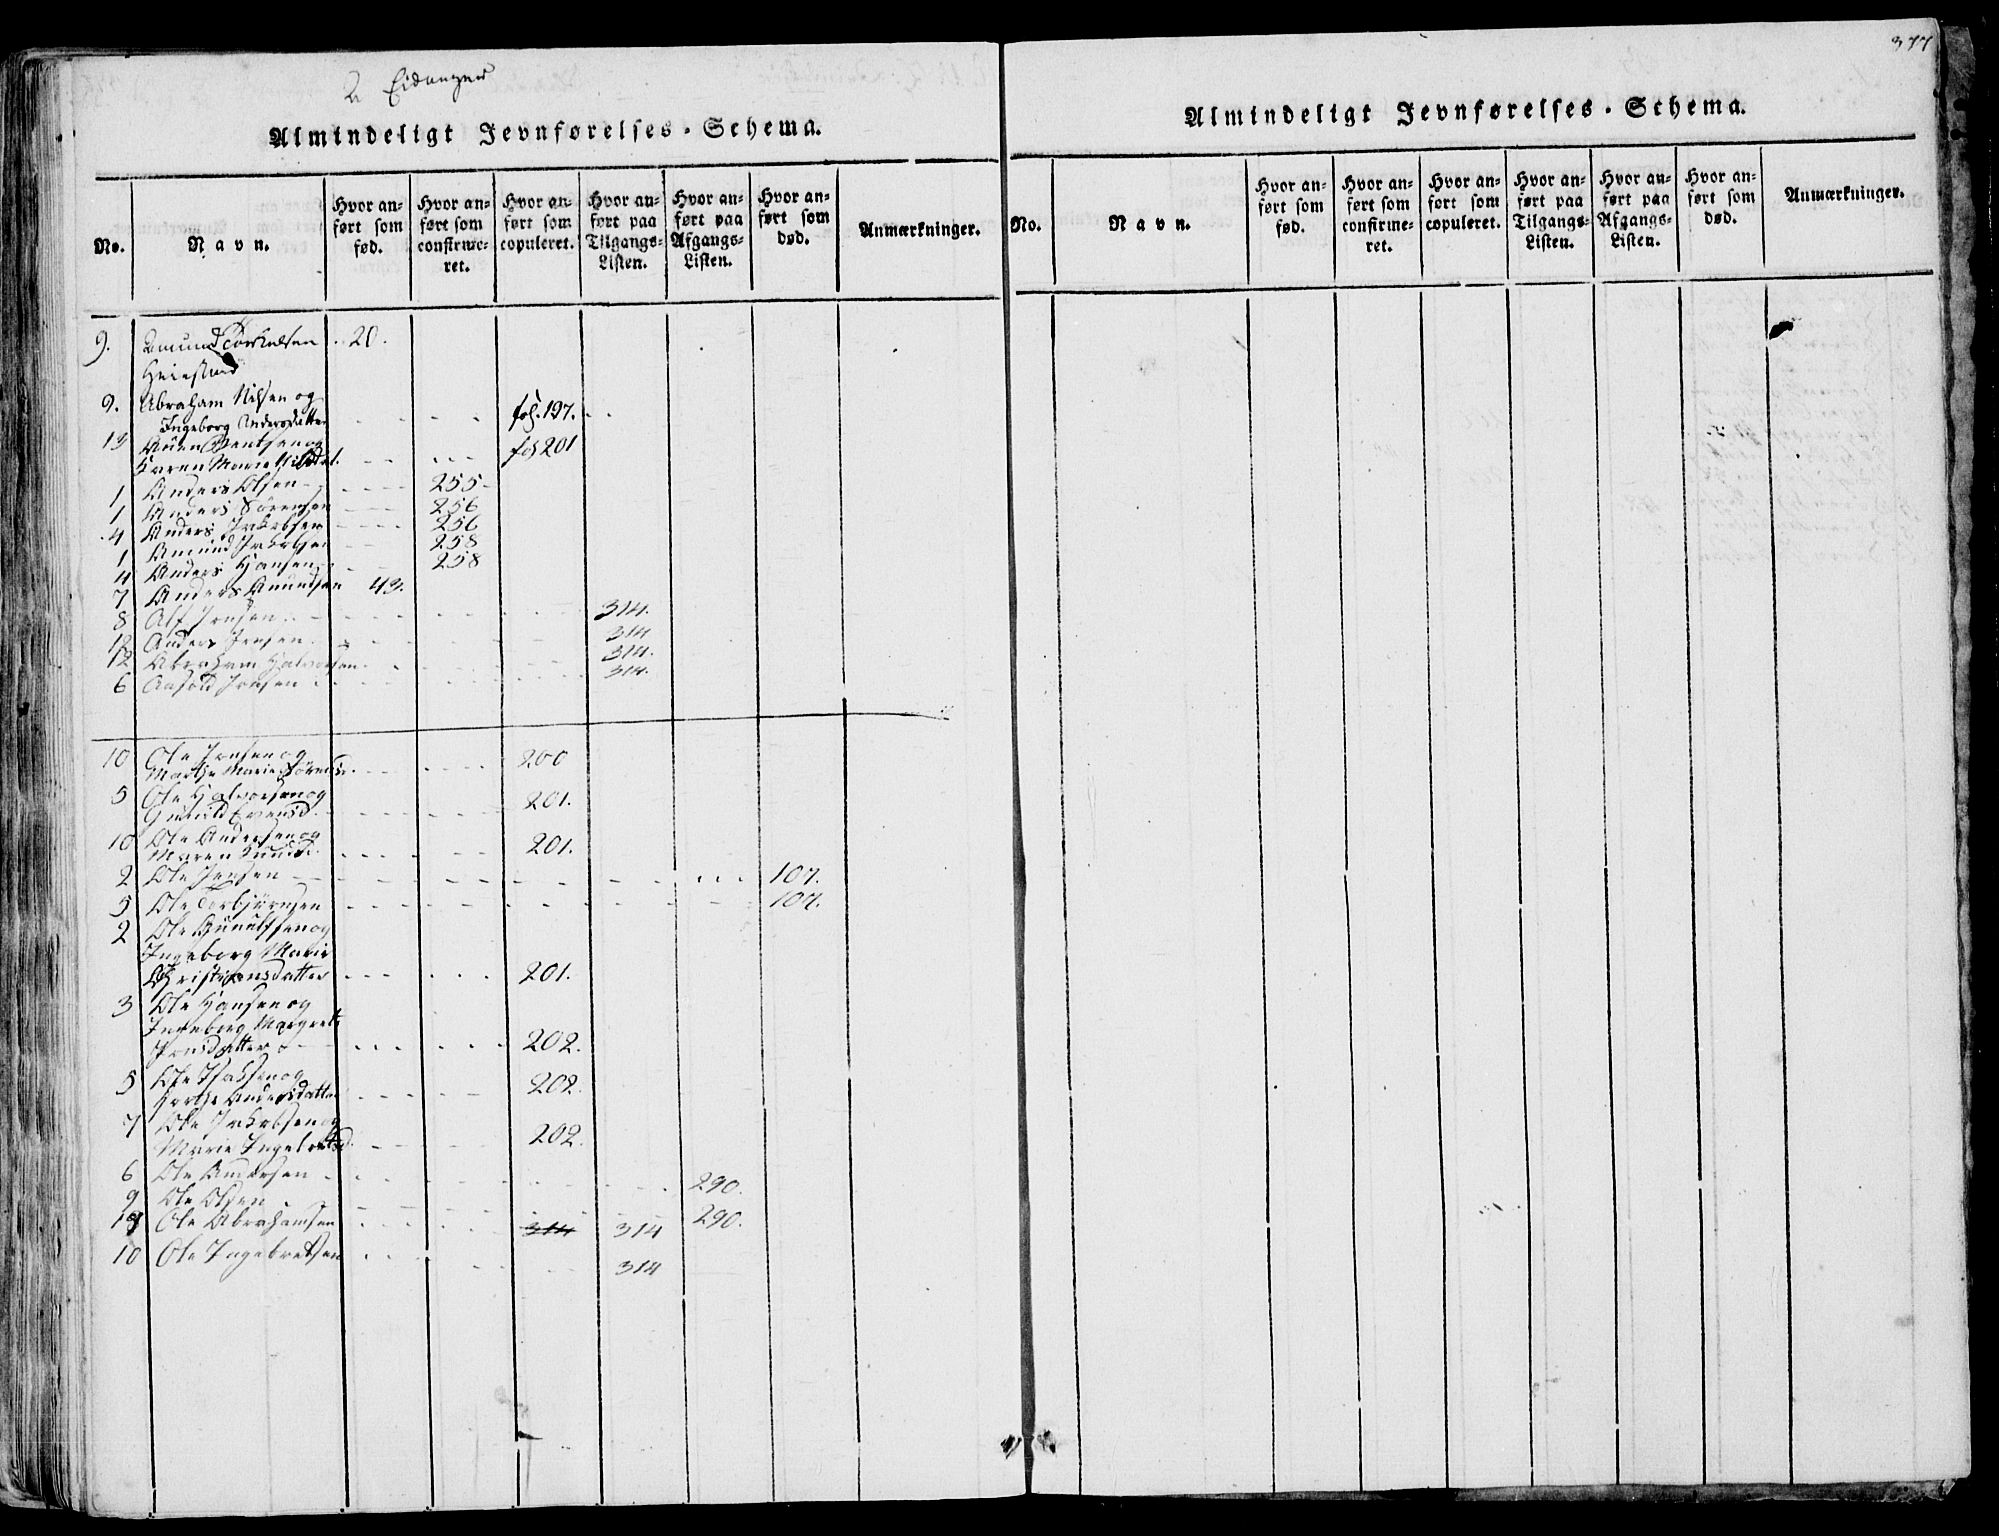 Eidanger
Almindeligt Jevnførelses-Schema.
No. Navn. Hvor anført som fød. Hvor anført som confirmeret. Hvor anført som copuleret. Hvor anført paa Tilgangs-Listen. Hvor anført paa Afgangs-Listen. Hvor anført som død. Anmærkninger.
9. Amund Torkelsen 20.
9. Abraham Nilsen og
Ingeborg Andersdatter fol. 197.
13 Bentsen og
Karen Marie fol 201
1 Anders Olsen 255
1 Anders Sørensen 256
4 Anders Jakobsen 256
1 Amund Jakobsen 258
4 Anders Hansen 258
7 Anders Amundsen 43.
8 Alf Jensen 314.
12 Anders Jensen 314
12 Abraham Halvorsen 314.
6 Jonsen 314.
10 Ole Jensen og
Marthe Marie Sørensd. 200
5 Ole Halvorsen og
Gunild 201.
10 Ole Andersen og
Maren Knudsd. 201.
2 Ole Jensen 107.
5 Ole Torbjörnsen 107.
2 Ole og
Ingeborg Marie
Christiansdatter 201.
3 Ole Hansen og
Ingeborg Margrete
Jensdatter 202.
5 Ole Isaksen og
Andersdatter 202.
7 Ole Jakobsen og
Marie 202.
6 Ole Andersen 290.
9 Ole Olsen 290.
Ole Abrahamsen 314 314
10 Ole Ingebretsen 314
377
Almindeligt Jevnførelses-Schema.
No. Navn. Hvor anført som fød. Hvor anført som confirmeret. Hvor anført som copuleret. Hvor anført paa Tilgangs-Listen. Hvor anført paa Afgangs-Listen. Hvor anført som død. Anmærkninger.